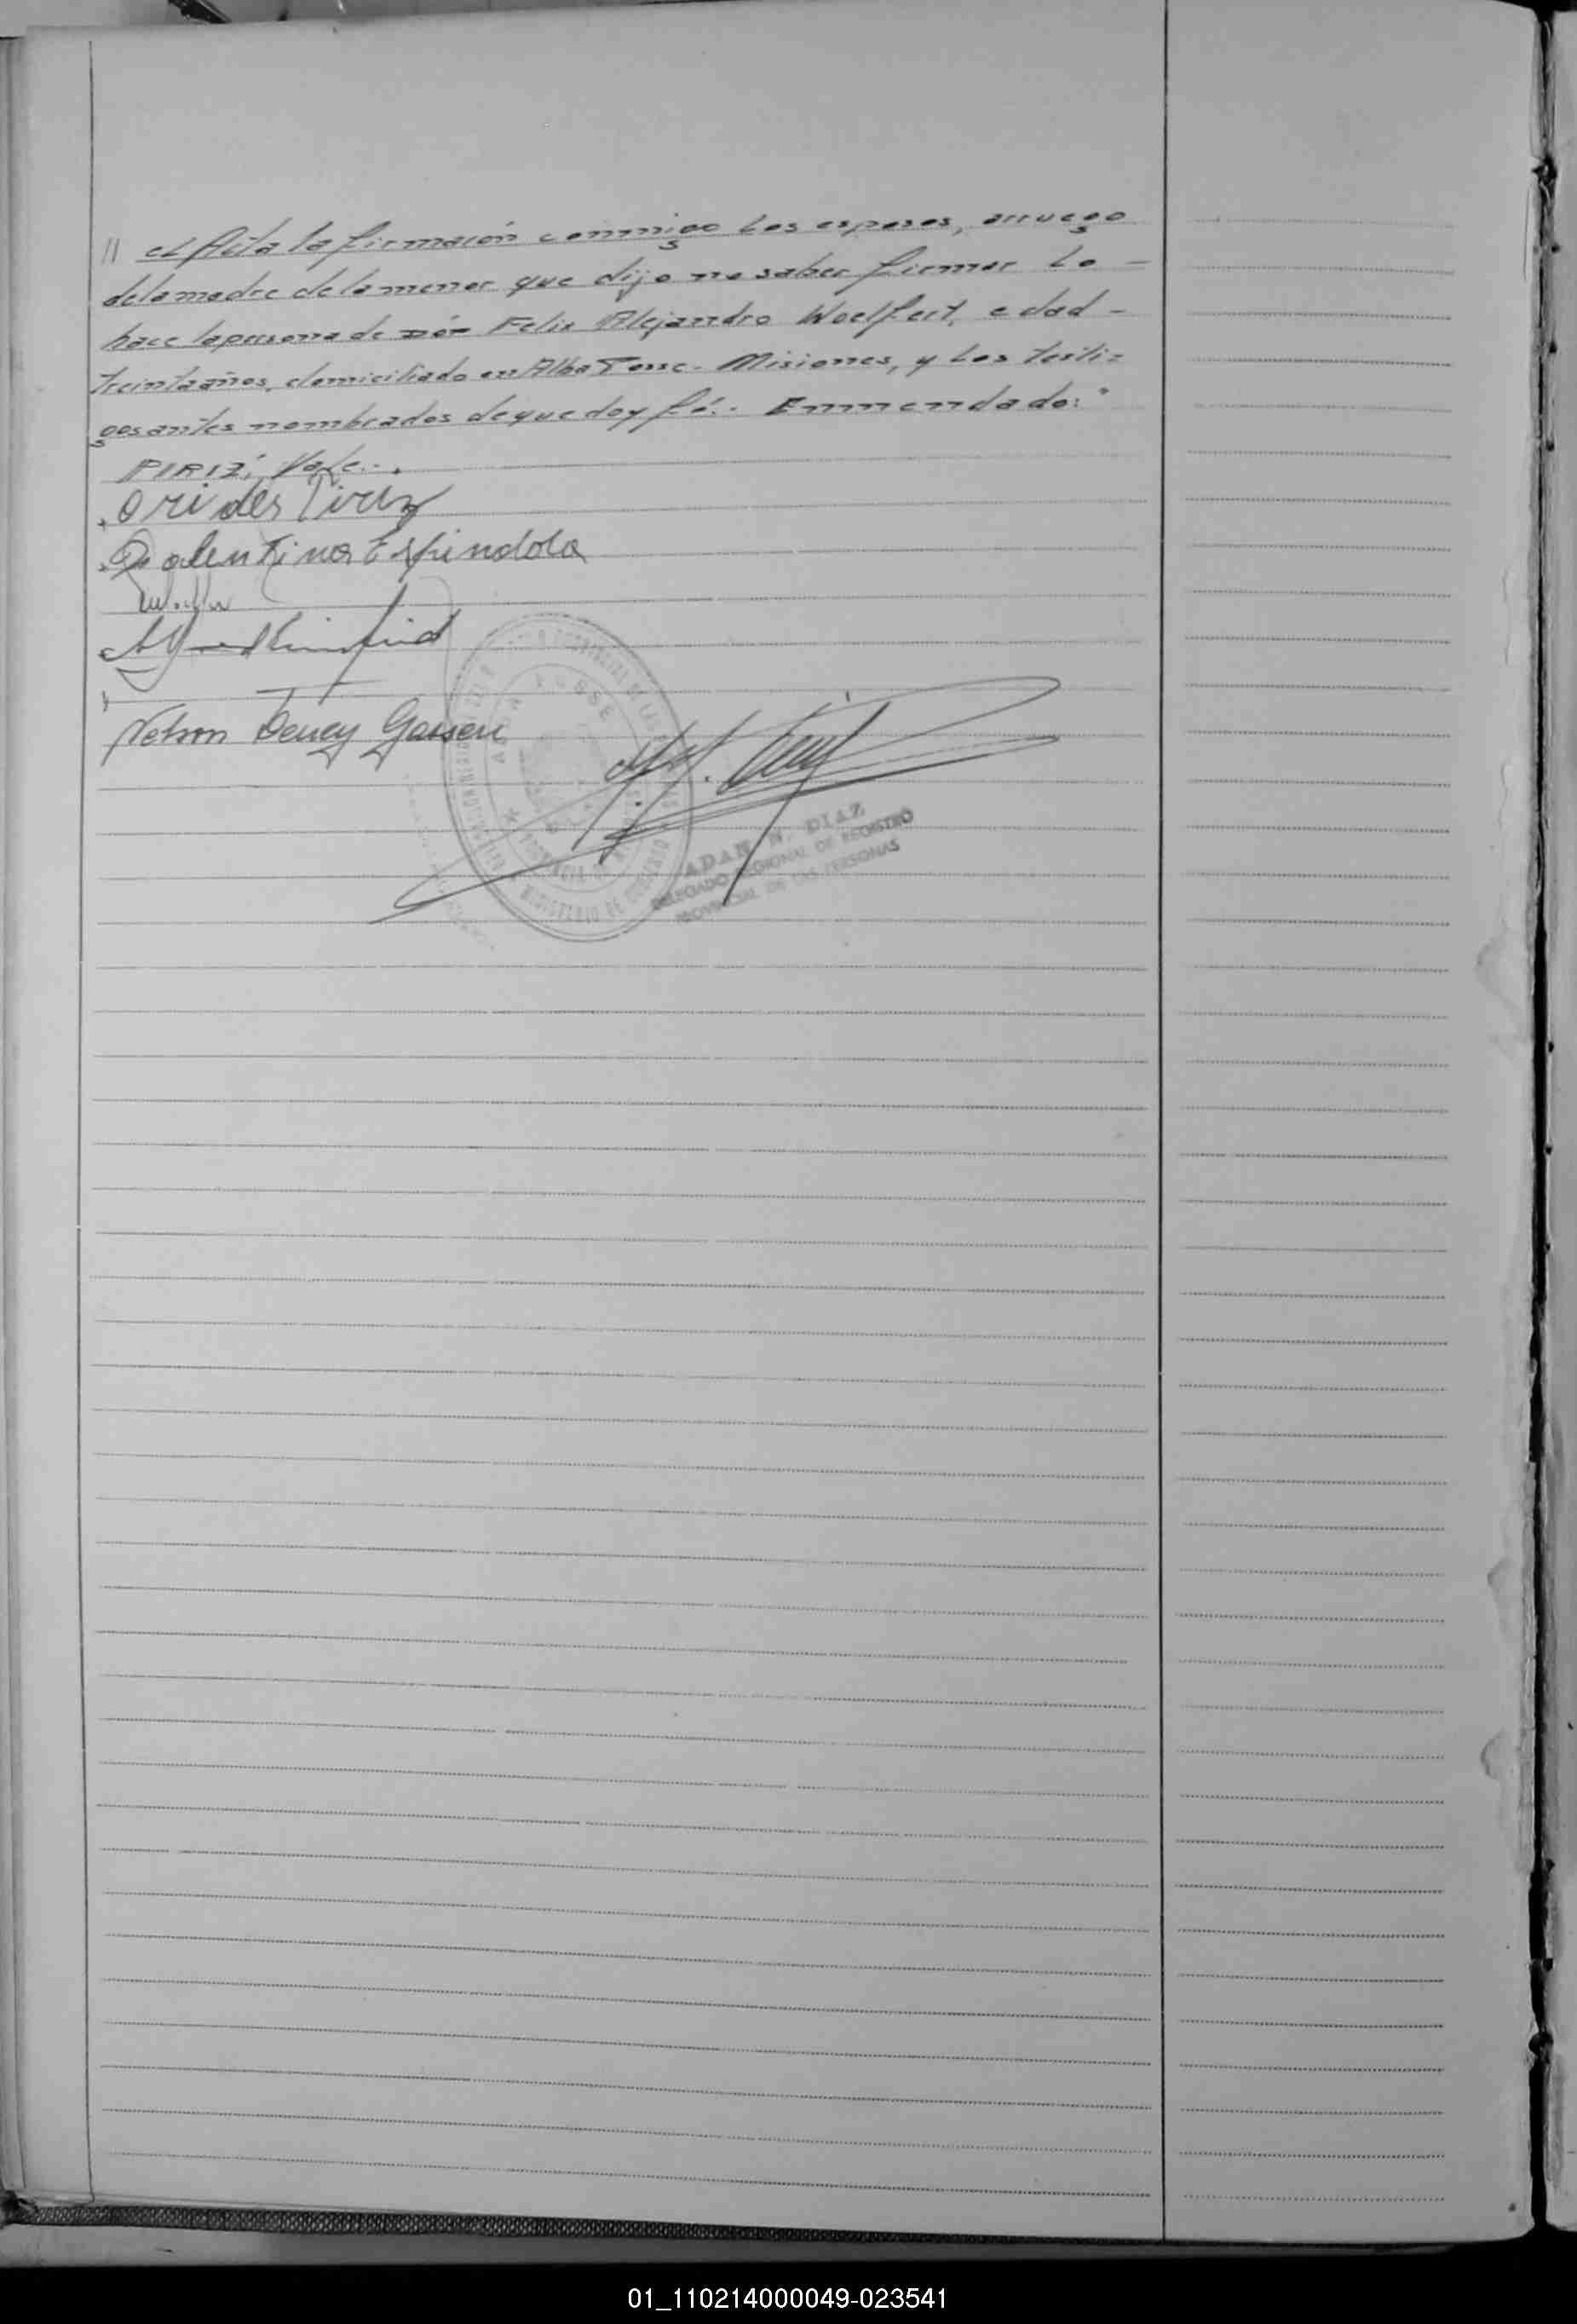 // el Acta la firmarón conmigo Los esposos, arruego
de la madre de la menor que dijo no saber firmar Lo -
hace la persona de Dón Felix Alejandro Woelfert, edad -
treinta años, domiciliado en Alba Posse - Misiones, y Los testi=
gos antes nombrados de que doy fé.- Enmendado: "
PIRIZ; Vale.-
Orides Piriz
Valentina Espindola
Nelson Deney Gassen
ALBA POSSE
MINISTERIO DE GOBIERNO
ADAN N. DIAZ
DELEGADO REGIONAL DE REGISTRO
PROVINCIAL DE LAS PERSONAS
01_110214000049-023541